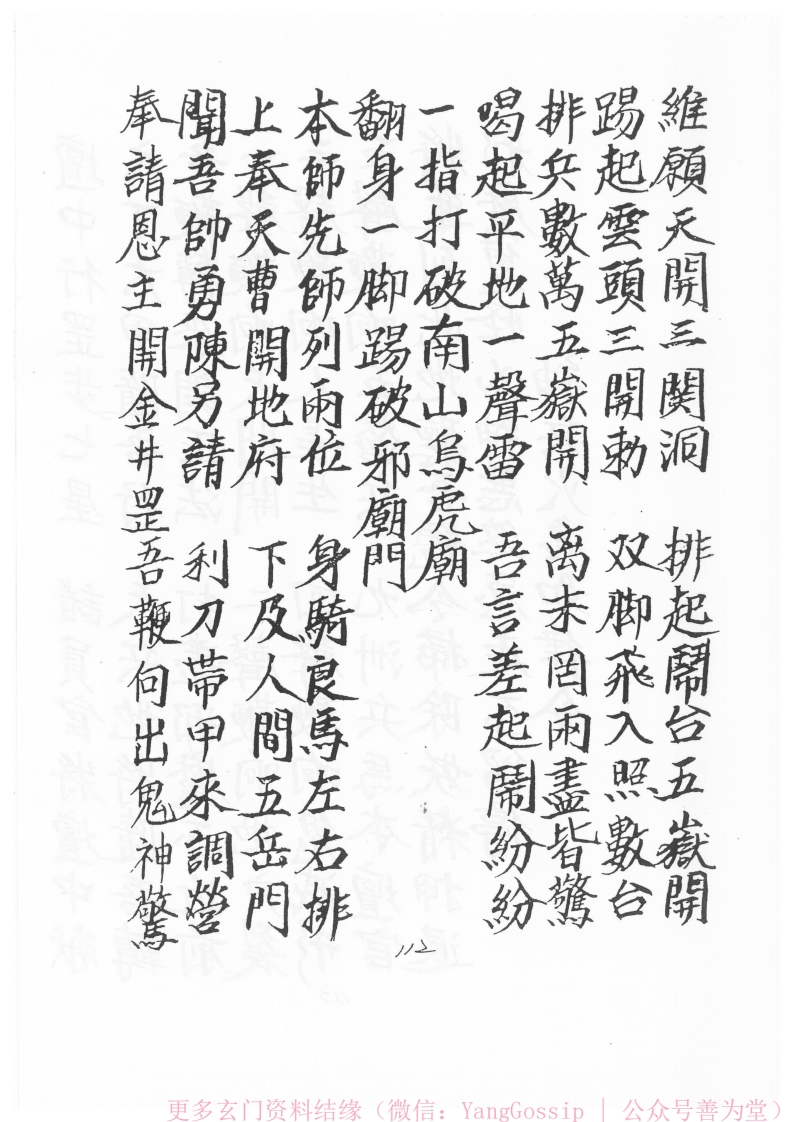 維願天開三関洞　排起鬧台五嶽開
踢起雲頭三開勅　双脚飛入照數台
排兵數萬五嶽開　离未罔兩盡皆驚
喝起平地一聲雷　吾言差起鬧紛紛
一指打破南山烏虎廟
翻身一脚踢破邪廟門
本師先師列兩位　身騎良馬左右排
上奉天曹開地府　下及人間五岳門
聞吾帥勇陳另請　利刀帶甲來調營
奉請恩主開金井罡吾鞭向出鬼神驚
112
更多玄门资料结缘（微信：YangGossip | 公众号善为堂）